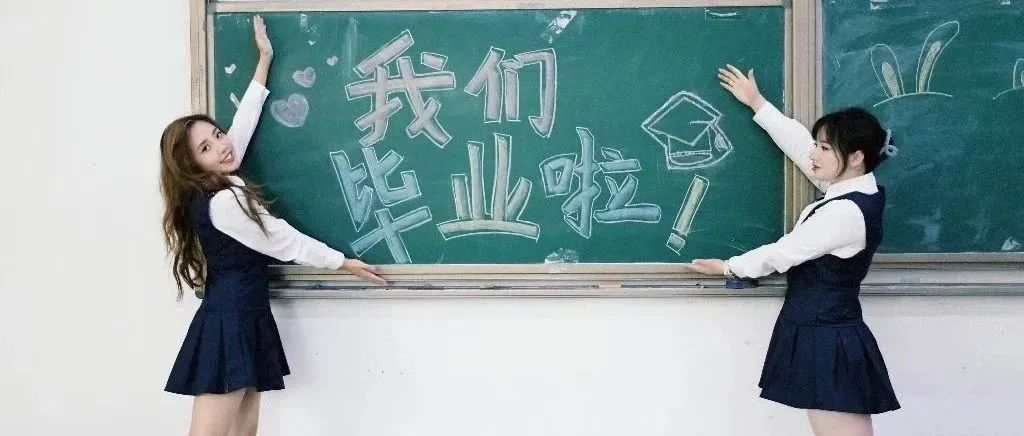 我们
毕业啦!